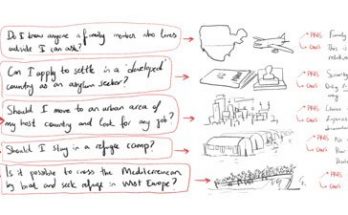 Do I know anyone a family member who lives
outside I can ask?
Can I apply to settle in a 'developed'
country as an asylum seeker?
Should I move to an urban area of
my host country and look for any job?
Should I stay in a refugee camp?
Is it possible to cross the Mediterranean
by boat and seek refuge in West Europe?
PROS
Family
CONS
This is
PROS
Security
CONS
Only
PROS
CONS
PROS
CONS
PROS
CONS